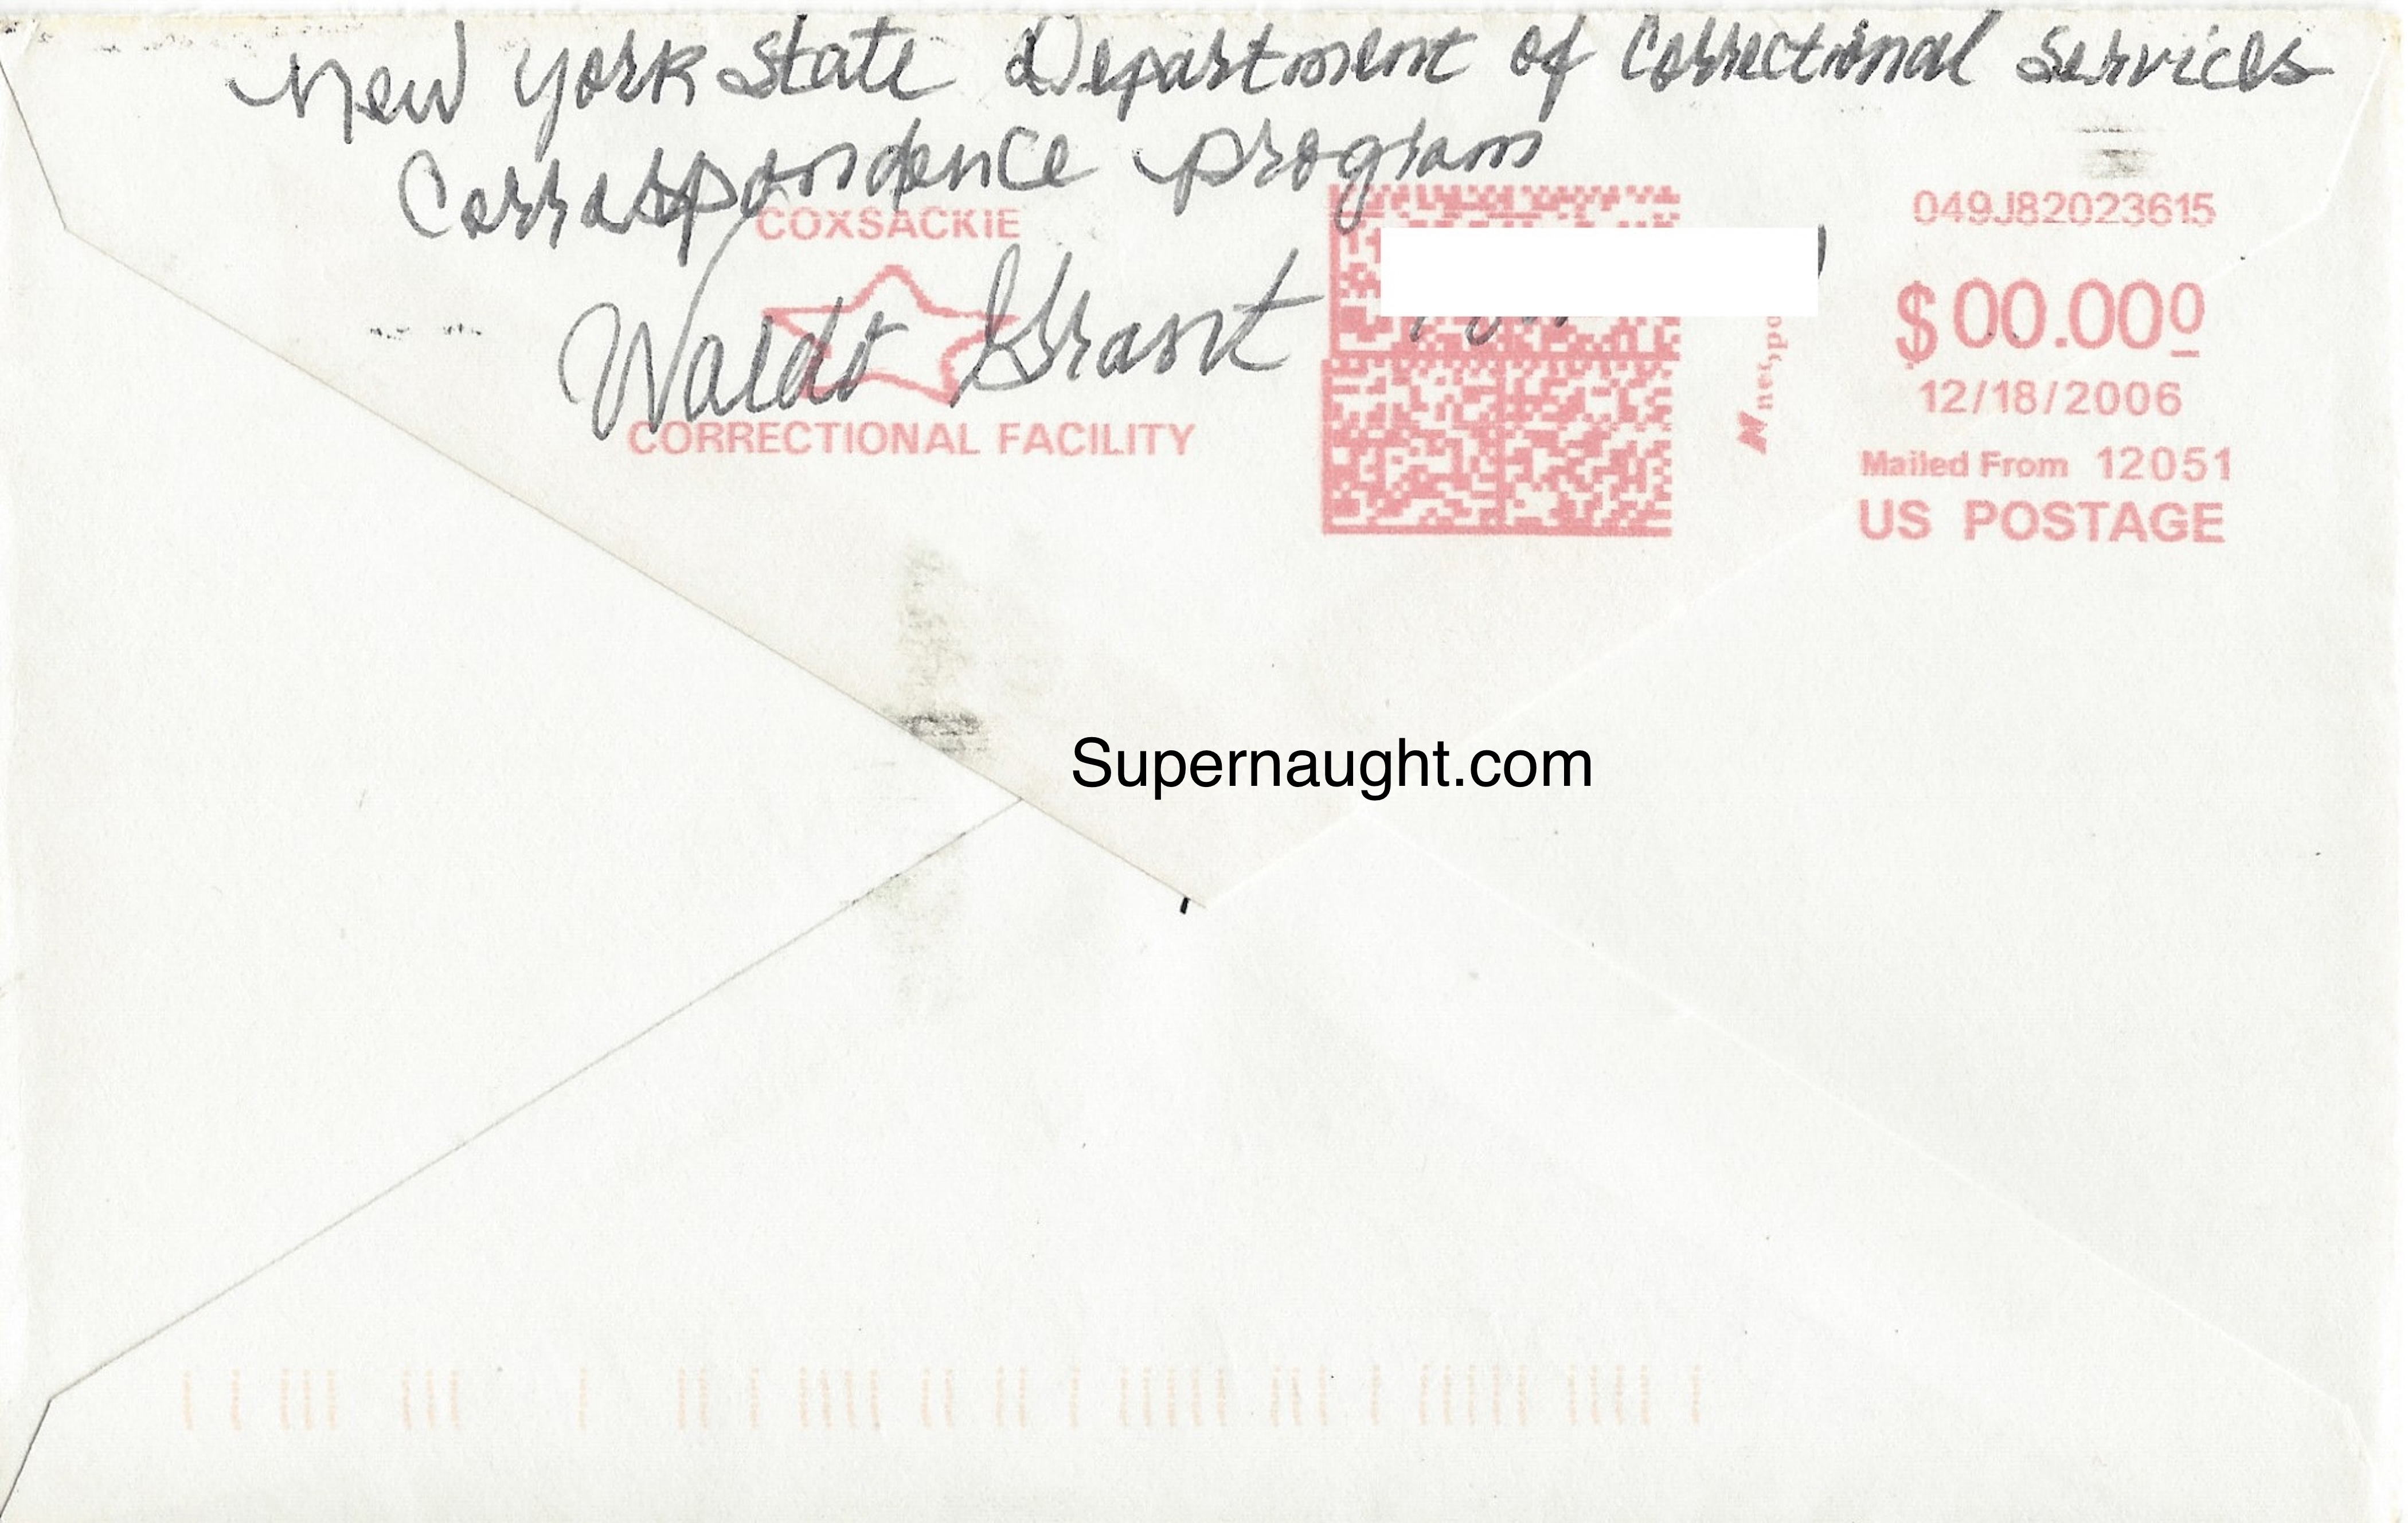 New York State Department of Correctional Services
Correspondence program
COXSACKIE
Waldo Grant
CORRECTIONAL FACILITY
049J82023615
$00.000
12/18/2006
Mailed From 12051
US POSTAGE
Supernaught.com